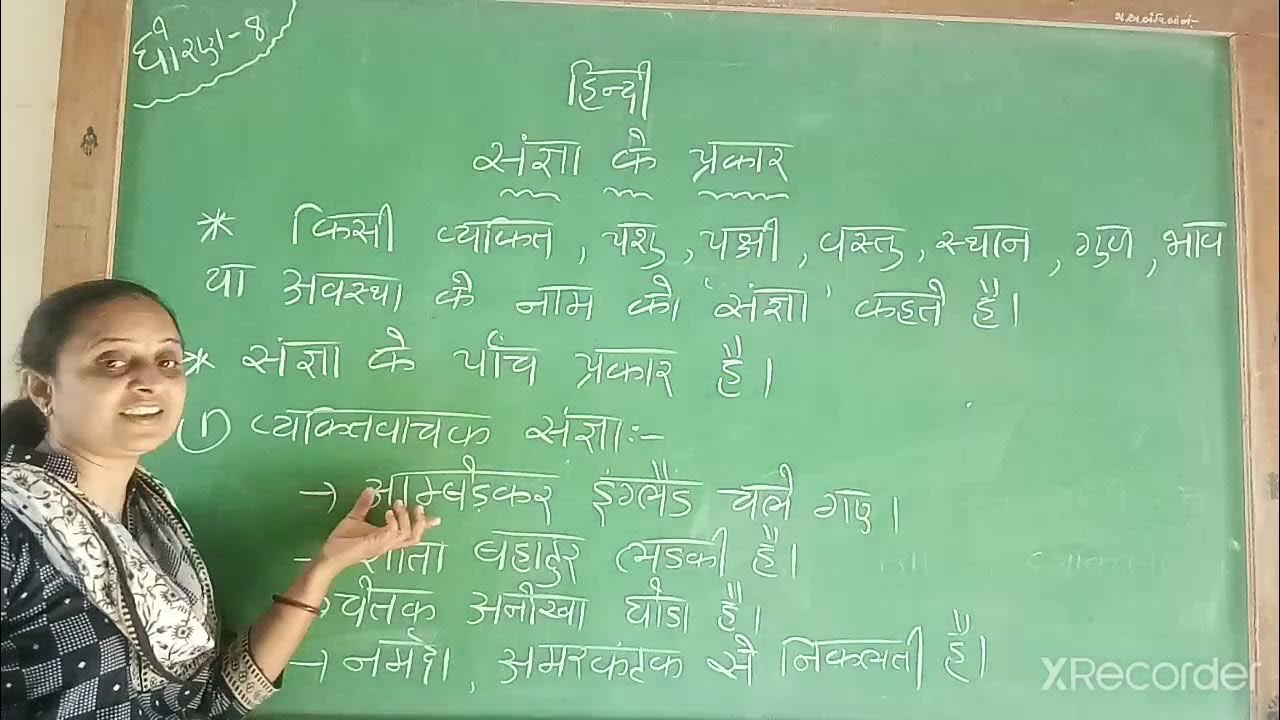 ધોરણ-8
हिन्दी
संज्ञा के प्रकार
* किसी व्यक्ति, पशु, पक्षी, वस्तु, स्थान, गुण, भाव
या अवस्था के नाम को 'संज्ञा' कहते है।
* संज्ञा के पाँच प्रकार है।
1) व्यक्तिवाचक संज्ञा:-
→ आम्बेड़कर इंग्लैंड चले गए।
बहादुर लडकी है।
→ चेतक अनोखा घोडा है।
→ नर्मदा, अमरकंटक से निकलती है।
XRecorder